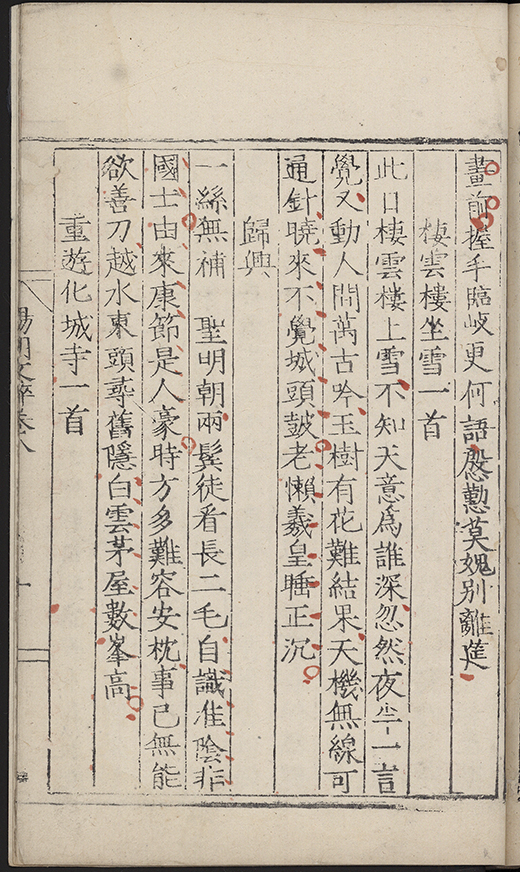 畫前握手臨岐更何語慇懃莫媿別離筵
棲雲樓坐雪一首
此日棲雲樓上雪不知天意為誰深忽然夜半一言
覺又動人間萬古吟玉樹有花難結果天機無線可
通針曉來不覺城頭皷老懶羲皇睡正沉
歸興
一絲無補 聖明朝兩鬂徒看長二毛自識淮陰非
國士由來康節是人豪時方多難容安枕事已無能
欲善刀越水東頭尋舊隱白雲茅屋數峯高
重遊化城寺一首
陽明文粹卷八